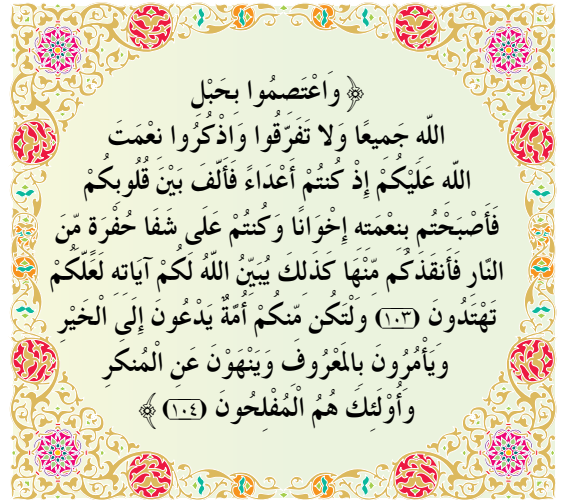 ﴿ وَاعْتَصِمُوا بِحَبْلِ
اللَّهِ جَمِيعًا وَلَا تَفَرَّقُوا وَاذْكُرُوا نِعْمَتَ
اللَّهِ عَلَيْكُمْ إِذْ كُنتُمْ أَعْدَاءً فَأَلَّفَ بَيْنَ قُلُوبِكُمْ
فَأَصْبَحْتُم بِنِعْمَتِهِ إِخْوَانًا وَكُنتُمْ عَلَى شَفَا حُفْرَةٍ مِّنَ
النَّارِ فَأَنقَذَكُم مِّنْهَا كَذَلِكَ يُبَيِّنُ اللَّهُ لَكُمْ آيَاتِهِ لَعَلَّكُمْ
تَهْتَدُونَ (١٠٣) وَلْتَكُن مِّنكُمْ أُمَّةٌ يَدْعُونَ إِلَى الْخَيْرِ
وَيَأْمُرُونَ بِالْمَعْرُوفِ وَيَنْهَوْنَ عَنِ الْمُنكَرِ
وَأُوْلَئِكَ هُمُ الْمُفْلِحُونَ (١٠٤) ﴾